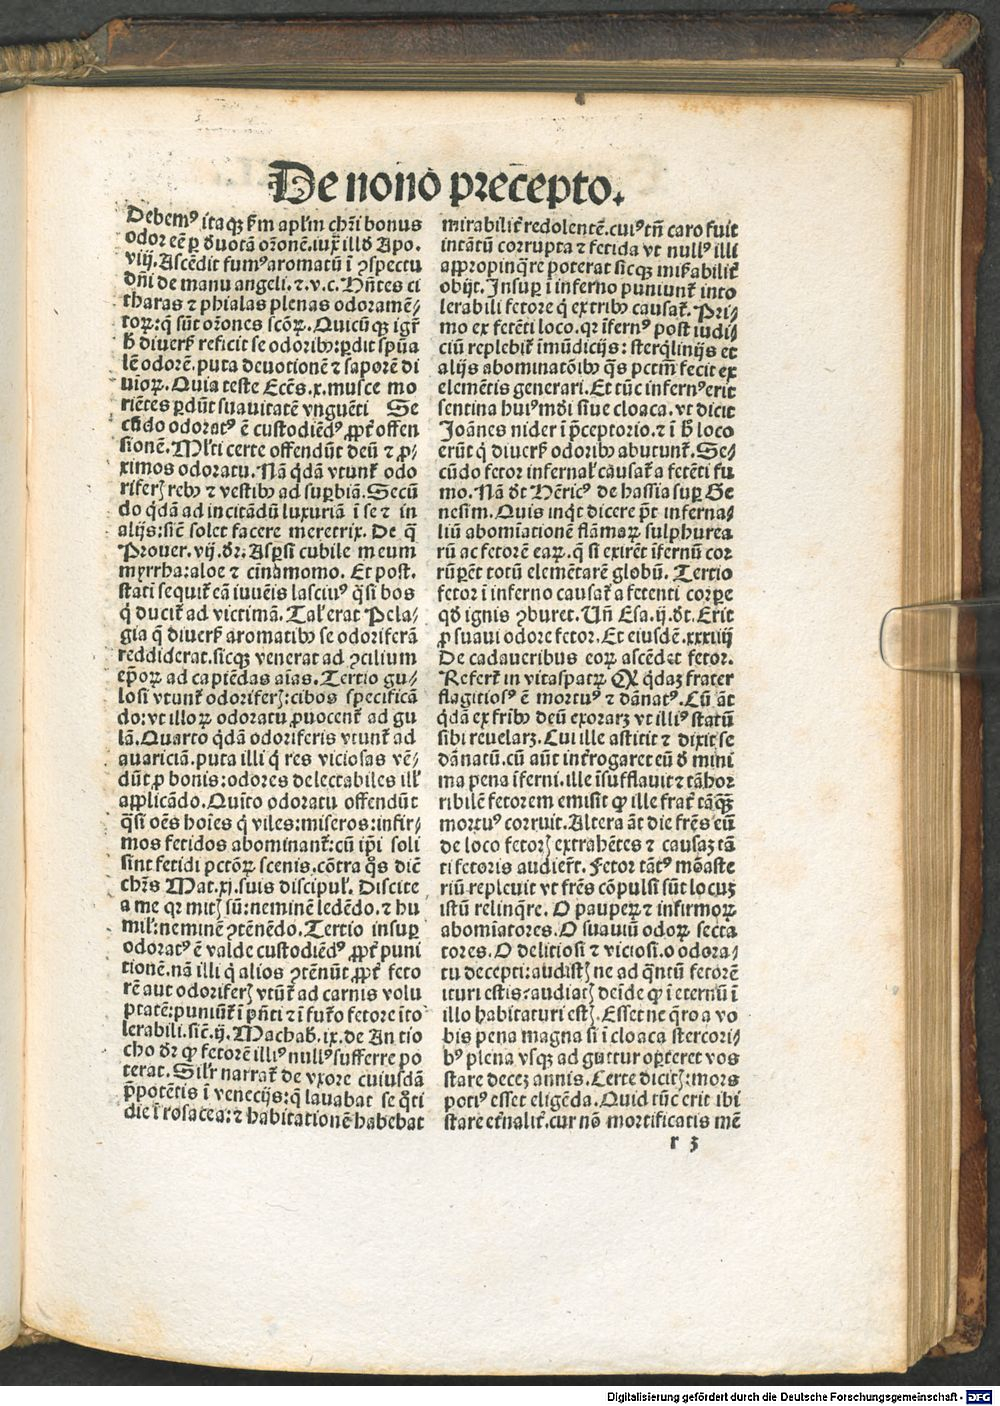 De nono prec̄epto.
Debemꝰ itaqꝫ ẜm apl̄m chr̄i bonus
odor eē ꝑ d̄uotā or̄onē.iux̄ ill̄d Apo.
viij. Ascēdit fumꝰ aromatū ī ↄspectu
dn̄i de manu angeli.⁊.v.c. Hn̄tes ci
tharas ⁊ phialas plenas odoramē⸗
toꝝ:q̄ sūt or̄ones scōꝝ. Quicūqꝫ igr̄
h̄ diuers̄ reficit se odoribꝰ:ꝑdit spūa
lē odorē.puta deuotionē ⁊ saporē di
uīoꝝ. Quia teste Eccēs.x.musce mo
riētes ꝑdūt suauitatē vnguēti Se
cūdo odoratꝰ ē custodiēdꝰ ꝓpt̄ offen
sionē. Ml̄ti certe offendūt deū ⁊ ꝓ⸗
ximos odoratu. Nā q̄dā vtunt̄ odo
riferꝭ rebꝰ ⁊ vestibꝰ ad suꝑbiā. Secū
do q̄dā ad incitādū luxuriā ī se ⁊ in
alijs:sic̄ solet facere meretrix. De q̄
Prouer.vij.dr̄. Asꝑsi cubile meum
myrrha:aloe ⁊ cinamomo. Et post.
stati sequit̄ eā iuuēis lasciuꝰ q̄si bos
q̄ ducit̄ ad victimā. Tal̄ erat Pela⸗
gia q̄ diuers̄ aromatibꝰ se odoriferā
reddiderat.sicqꝫ venerat ad ↄcilium
ep̄oꝝ ad capiēdas aīas. Tertio gu⸗
losi vtunt̄ odoriferꝭ:cibos specificā
do:vt illoꝝ odoratu ꝓuocent̄ ad gu
lā. Quarto q̄dā odoriferis vtunt̄ ad
auariciā.puta illi q̄ res viciosas vē⸗
dūt ꝓ bonis:odores delectabiles ill̄
applicādo. Quīto odoratu offendūt
q̄si oēs hoīes q̄ viles:miseros:infir⸗
mos fetidos abominant̄:cū ip̄i soli
sint fetidi pctōꝝ scenis.cōtra q̄s diē
chr̄s Mat.xj.suis discipul̄. Discite
a me qꝛ mitꝭ sū:neminē ledēdo.⁊ hu
mil̄:neminē ↄtēnēdo. Tertio insuꝑ
odoratꝰ ē valde custodiēdꝰ ꝓpt̄ puni
tionē.nā illi q̄ alios ↄtēnūt ꝓpt̄ feto
rē aut odoriferꝭ vtūt̄ ad carnis volu
ptatē:puniūt̄ ī p̄nti ⁊ ī fut̄o fetore īto
lerabili.sic̄.ij. Machab̄.ix.de An tio
cho dr̄ ꝙ fetorē illiꝰ nullꝰ sufferre po
terat. Sil̄r narrat̄ de vxore cuiusdā
p̄potētis ī venecijs:q̄ lauabat se q̄ti
die ī rosacea:⁊ habitationē habebat
mirabilit̄ redolentē.cuiꝰ tn̄ caro fuit
intātū corrupta ⁊ fetida vt nullꝰ illi
appropinq̄re poterat sicqꝫ mirabilit̄
obijt. Insuꝑ ī inferno puniunt̄ into
lerabili fetore q̄ ex tribꝰ causat̄. Pri⸗
mo ex fetēti loco.qꝛ īfernꝰ post iudi⸗
ciū replebit̄ īmūdicijs: sterq̄linijs et
alijs abominatōibꝰ q̄s pctm̄ fecit ex
elemētis generari. Et tūc infernꝰ erit
sentina huiꝰmōi siue cloaca.vt dicit
Joānes nider ī p̄ceptorio.⁊ ī h̄ loco
erūt q̄ diuers̄ odoribꝰ abutunt̄. Se⸗
cūdo fetor infernal̄ causat̄ a fetēti fu
mo. Nā dt̄ Hēricꝰ de hassia suꝑ Ge
nesim. Quis inq̄t dicere p̄t inferna⸗
liū abomīationē flāmaꝝ sulphurea
rū ac fetorē eaꝝ.q̄ si exirēt īfernū cor
rūꝑēt totū elemētarē globū. Tertio
fetor ī inferno causat̄ a fetenti corꝑe
qd̄ ignis ↄburet. Un̄ Esa.ij.dt̄. Erit
ꝓ suaui odore fetor. Et eiusdē.xxxiiij
De cadaueribus eoꝝ ascēdet fetor.
Refert̄ in vitaspatꝝ Qꝙ q̄daꝫ frater
flagitiosꝰ ē mortuꝰ ⁊ dānatꝰ. Cū āt
q̄dā ex fribꝰ deū exoraꝛꝫ vt illiꝰ statū
sibi reuelaꝛꝫ. Cui ille astitit ⁊ dixit se
dānatū.cū aūt int̄rogaret eū d̄ mini
ma pena īferni.ille īsufflauit ⁊ tā hor
ribilē fetorem emisit ꝙ ille frat̄ tāqꝫ̄
mortuꝰ corruit. Altera āt die frēs eū
de loco fetorꝭ extrahētes ⁊ causaꝫ tā
ti fetoris audiert̄. Fetor tātꝰ mōaste
riū repleuit vt frēs cōpulsi sūt locuꝫ
istū relinq̄re. O paupeꝝ ⁊ infirmoꝝ
abomiatores. O suauiū odoꝝ secta
tores. O delitiosi ⁊ viciosi.o odora⸗
tu decepti:audistꝭ ne ad q̄ntū fetorē
ituri estis:audiatꝭ deīde ꝙ ī eternū ī
illo habitaturi estꝭ. Esset ne q̄ro a vo
bis pena magna si ī cloaca stercori⸗
bꝰ plena vsqꝫ ad guttur oꝑteret vos
stare deceꝫ annis. Certe dicitꝭ:mors
potiꝰ esset eligēda. Quid tūc erit ibi
stare et̄nalit̄.cur nō mortificatis mē
r 3
Digitalisierung gefördert durch die Deutsche Forschungsgemeinschaft - DFG